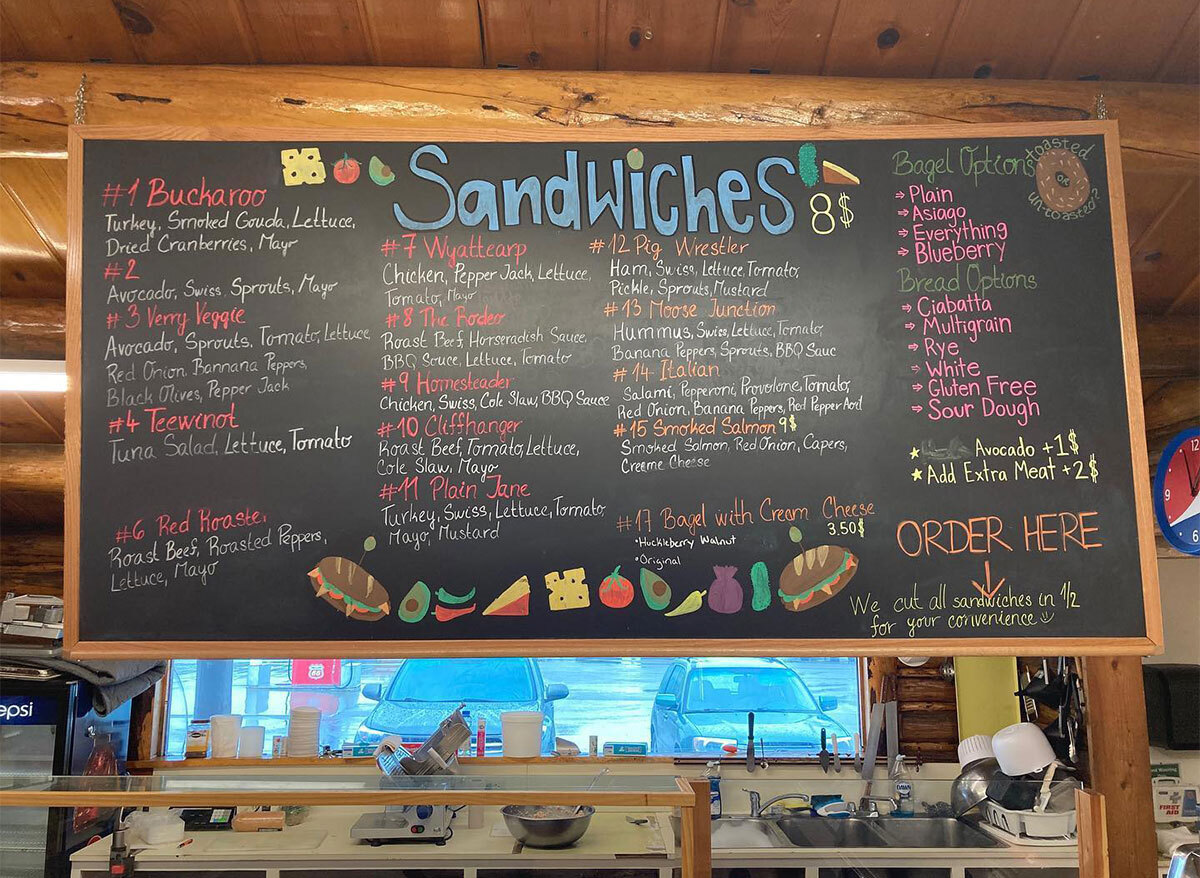 Sandwiches 8$
#1 Buckaroo
Turkey, Smoked Gouda, Lettuce,
Dried Cranberries, Mayo
#2
Avocado, Swiss, Sprouts, Mayo
#3 Verry Veggie
Avocado, Sprouts, Tomato, Lettuce
Red Onion, Bannana Peppers,
Black Olives, Pepper Jack
#4 Teewinot
Tuna Salad, Lettuce, Tomato
#6 Red Roaster
Roast Beef, Roasted Peppers,
Lettuce, Mayo
#7 Wyattearp
Chicken, Pepper Jack, Lettuce,
Tomato, Mayo
#8 The Rodeo
Roast Beef, Horseradish Sauce,
BBQ Souce, Lettuce, Tomato
#9 Homesteader
Chicken, Swiss, Cole Slaw, BBQ Sauce
#10 Cliffhanger
Roast Beef, Tomato, Lettuce,
Cole Slaw, Mayo
#11 Plain Jane
Turkey, Swiss, Lettuce, Tomato
Mayo, Mustard
#12 Pig Wrestler
Ham, Swiss, Lettuce, Tomato,
Pickle, Sprouts, Mustard
#13 Moose Junction
Hummus, Swiss, Lettuce, Tomato,
Banana Peppers, Sprouts, BBQ Sauc
#14 Italian
Salami, Pepperoni, Provolone, Tomato,
Red Onion, Banana Peppers, Red Pepper Aioli
#15 Smoked Salmon 9$
Smoked Salmon, Red Onion, Capers,
Creame Cheese
#17 Bagel with Cream Cheese
3.50$
•Huckleberry Walnut
•Original
Bagel Options
toasted
or
un-toasted?
⇒ Plain
⇒ Asiago
⇒ Everything
⇒ Blueberry
Bread Options
⇒ Ciabatta
⇒ Multigrain
⇒ Rye
⇒ White
⇒ Gluten Free
⇒ Sour Dough
★ Avocado +1$
★ Add Extra Meat +2$
ORDER HERE
We cut all sandwiches in 1/2
for your convenience
epsi
66
DAWN
FIRST
AID
12
9
6